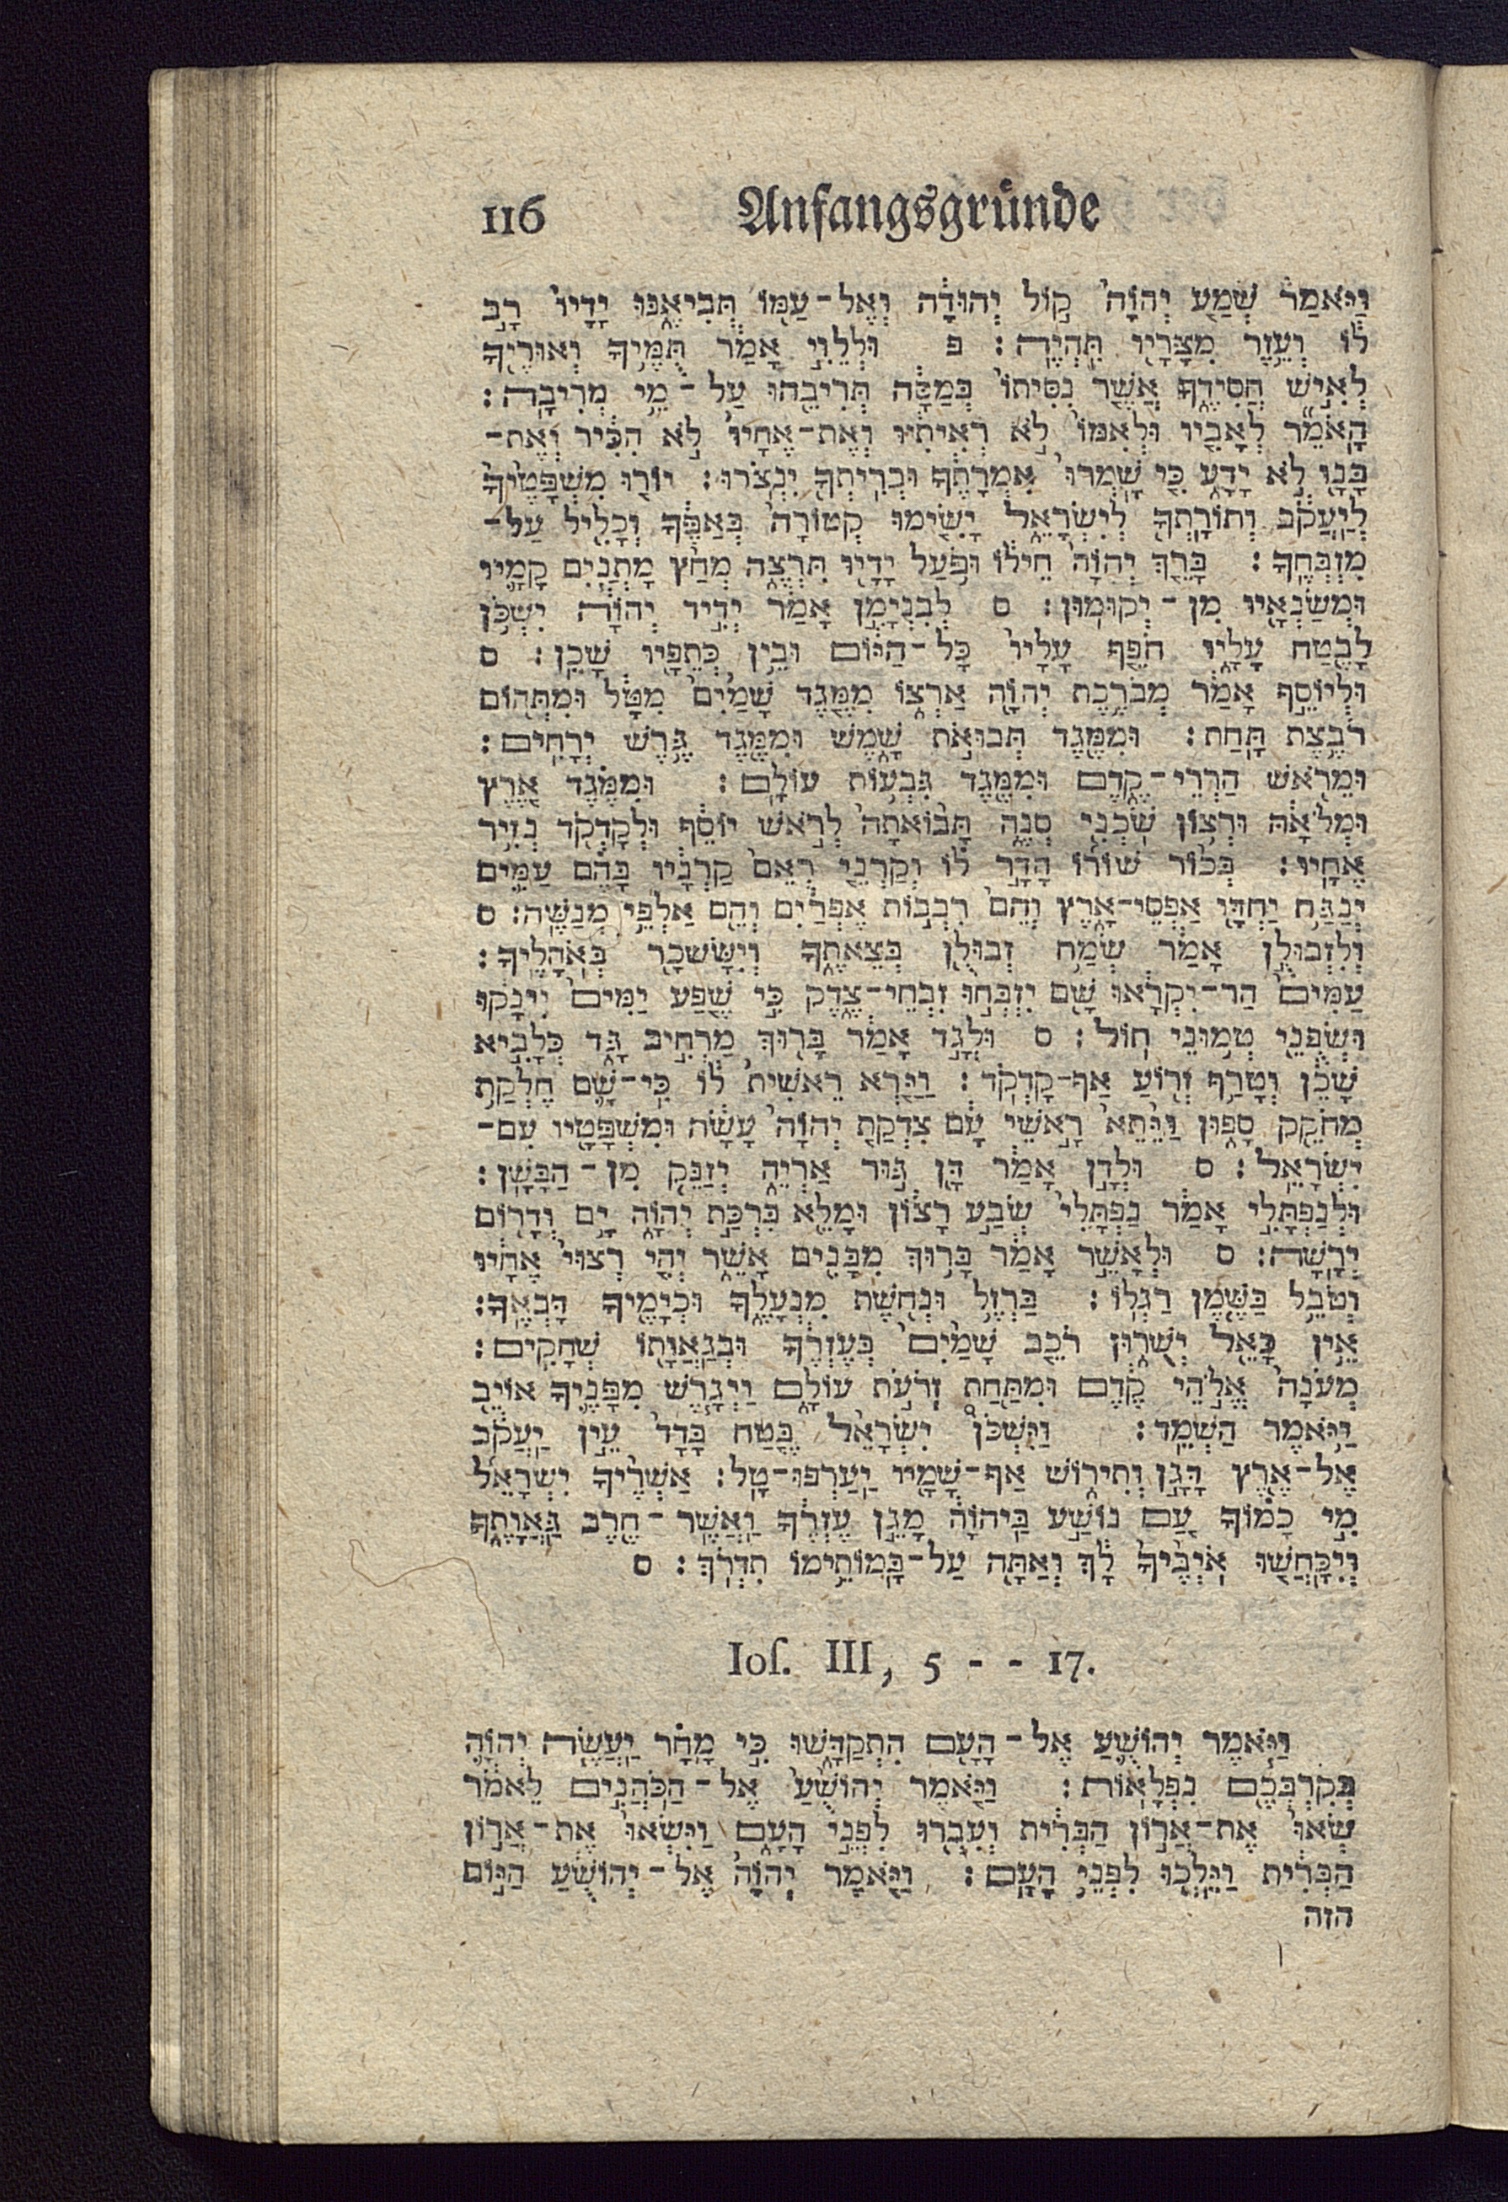 116 Anfangsgründe
וַיֹּאמַר שְׁמַע יְהוָֹה קוֹל יְהוּדָה וְאֶל־עַמּוֹ תְּבִיאֶנּוּ יָדָיו רָב
לוֹ וְעֵזֶר מִצָּרָיו תִּהְיֶה׃ פ וּלְלֵוִי אָמַר תֻּמֶּיךָ וְאוּרֶיךָ
לְאִישׁ חֲסִידֶךָ אֲשֶׁר נִסִּיתוֹ בְּמַסָּה תְּרִיבֵהוּ עַל־מֵי מְרִיבָה׃
הָאֹמֵר לְאָבִיו וּלְאִמּוֹ לֹא רְאִיתִיו וְאֶת־אֶחָיו לֹא הִכִּיר וְאֶת־
בָּנָו לֹא יָדָע כִּי שָׁמְרוּ אִמְרָתֶךָ וּבְרִיתְךָ יִנְצֹרוּ׃ יוֹרוּ מִשְׁפָּטֶיךָ
לְיַעֲקֹב וְתוֹרָתְךָ לְיִשְׂרָאֵל יָשִׂימוּ קְטוֹרָה בְּאַפֶּךָ וְכָלִיל עַל־
מִזְבְּחֶךָ׃ בָּרֵךְ יְהוָֹה חֵילוֹ וּפֹעַל יָדָיו תִּרְצֶה מְחַץ מָתְנַיִם קָמָיו
וּמְשַׂנְאָיו מִן־יְקוּמוּן׃ ס לְבִנְיָמִן אָמַר יְדִיד יְהוָֹה יִשְׁכֹּן
לָבֶטַח עָלָיו חֹפֵף עָלָיו כָּל־הַיּוֹם וּבֵין כְּתֵפָיו שָׁכֵן׃ ס
וּלְיוֹסֵף אָמַר מְבֹרֶכֶת יְהוָֹה אַרְצוֹ מִמֶּגֶד שָׁמַיִם מִטָּל וּמִתְּהוֹם
רֹבֶצֶת תָּחַת׃ וּמִמֶּגֶד תְּבוּאֹת שָׁמֶשׁ וּמִמֶּגֶד גֶּרֶשׁ יְרָחִים׃
וּמֵרֹאשׁ הַרְרֵי־קֶדֶם וּמִמֶּגֶד גִּבְעוֹת עוֹלָם׃ וּמִמֶּגֶד אֶרֶץ
וּמְלֹאָהּ וּרְצוֹן שֹׁכְנִי סְנֶה תָּבוֹאתָה לְרֹאשׁ יוֹסֵף וּלְקָדְקֹד נְזִיר
אֶחָיו׃ בְּכוֹר שׁוֹרוֹ הָדָר לוֹ וְקַרְנֵי רְאֵם קַרְנָיו בָּהֶם עַמִּים
יְנַגַּח יַחְדָּו אַפְסֵי־אָרֶץ וְהֵם רִבְבוֹת אֶפְרַיִם וְהֵם אַלְפֵי מְנַשֶּׁה׃ ס
וְלִזְבוּלֻן אָמַר שְׂמַח זְבוּלֻן בְּצֵאתֶךָ וְיִשָּׂשכָר בְּאֹהָלֶיךָ׃
עַמִּים הַר־יִקְרָאוּ שָׁם יִזְבְּחוּ זִבְחֵי־צֶדֶק כִּי שֶׁפַע יַמִּים יִינָקוּ
וּשְׂפֻנֵי טְמוּנֵי חוֹל׃ ס וּלְגָד אָמַר בָּרוּךְ מַרְחִיב גָּד כְּלָבִיא
שָׁכֵן וְטָרַף זְרוֹעַ אַף־קָדְקֹד׃ וַיַּרְא רֵאשִׁית לוֹ כִּי־שָׁם חֶלְקַת
מְחֹקֵק סָפוּן וַיֵּתֵא רָאשֵׁי עָם צִדְקַת יְהוָֹה עָשָׂה וּמִשְׁפָּטָיו עִם־
יִשְׂרָאֵל׃ ס וּלְדָן אָמַר דָּן גּוּר אַרְיֵה יְזַנֵּק מִן־הַבָּשָׁן׃
וּלְנַפְתָּלִי אָמַר נַפְתָּלִי שְׂבַע רָצוֹן וּמָלֵא בִּרְכַּת יְהוָֹה יָם וְדָרוֹם
יְרָשָׁה׃ ס וּלְאָשֵׁר אָמַר בָּרוּךְ מִבָּנִים אָשֵׁר יְהִי רְצוּי אֶחָיו
וְטֹבֵל בַּשֶּׁמֶן רַגְלוֹ׃ בַּרְזֶל וּנְחֹשֶׁת מִנְעָלֶךָ וּכְיָמֶיךָ דָּבְאֶךָ׃
אֵין כָּאֵל יְשֻׁרוּן רֹכֵב שָׁמַיִם בְּעֶזְרֶךָ וּבְגַאֲוָתוֹ שְׁחָקִים׃
מְעֹנָה אֱלֹהֵי קֶדֶם וּמִתַּחַת זְרֹעֹת עוֹלָם וַיְגָרֶשׁ מִפָּנֶיךָ אוֹיֵב
וַיֹּאמֶר הַשְׁמֵד׃ וַיִּשְׁכֹּן יִשְׂרָאֵל בֶּטַח בָּדָד עֵין יַעֲקֹב
אֶל־אֶרֶץ דָּגָן וְתִירוֹשׁ אַף־שָׁמָיו יַעַרְפוּ־טָל׃ אַשְׁרֶיךָ יִשְׂרָאֵל
מִי כָמוֹךָ עַם נוֹשַׁע בַּיהוָֹה מָגֵן עֶזְרֶךָ וַאֲשֶׁר־חֶרֶב גַּאֲוָתֶךָ
וְיִכָּחֲשׁוּ אֹיְבֶיךָ לָךְ וְאַתָּה עַל־בָּמוֹתֵימוֹ תִדְרֹךְ׃ ס
Ioſ. III, 5 - - 17.
וַיֹּאמֶר יְהוֹשֻׁעַ אֶל־הָעָם הִתְקַדָּשׁוּ כִּי מָחָר יַעֲשֶׂה יְהוָֹה
בְּקִרְבְּכֶם נִפְלָאוֹת׃ וַיֹּאמֶר יְהוֹשֻׁעַ אֶל־הַכֹּהֲנִים לֵאמֹר
שְׂאוּ אֶת־אֲרוֹן הַבְּרִית וְעִבְרוּ לִפְנֵי הָעָם וַיִּשְׂאוּ אֶת־אֲרוֹן
הַבְּרִית וַיֵּלְכוּ לִפְנֵי הָעָם׃ וַיֹּאמֶר יְהוָֹה אֶל־יְהוֹשֻׁעַ הַיּוֹם
הזה